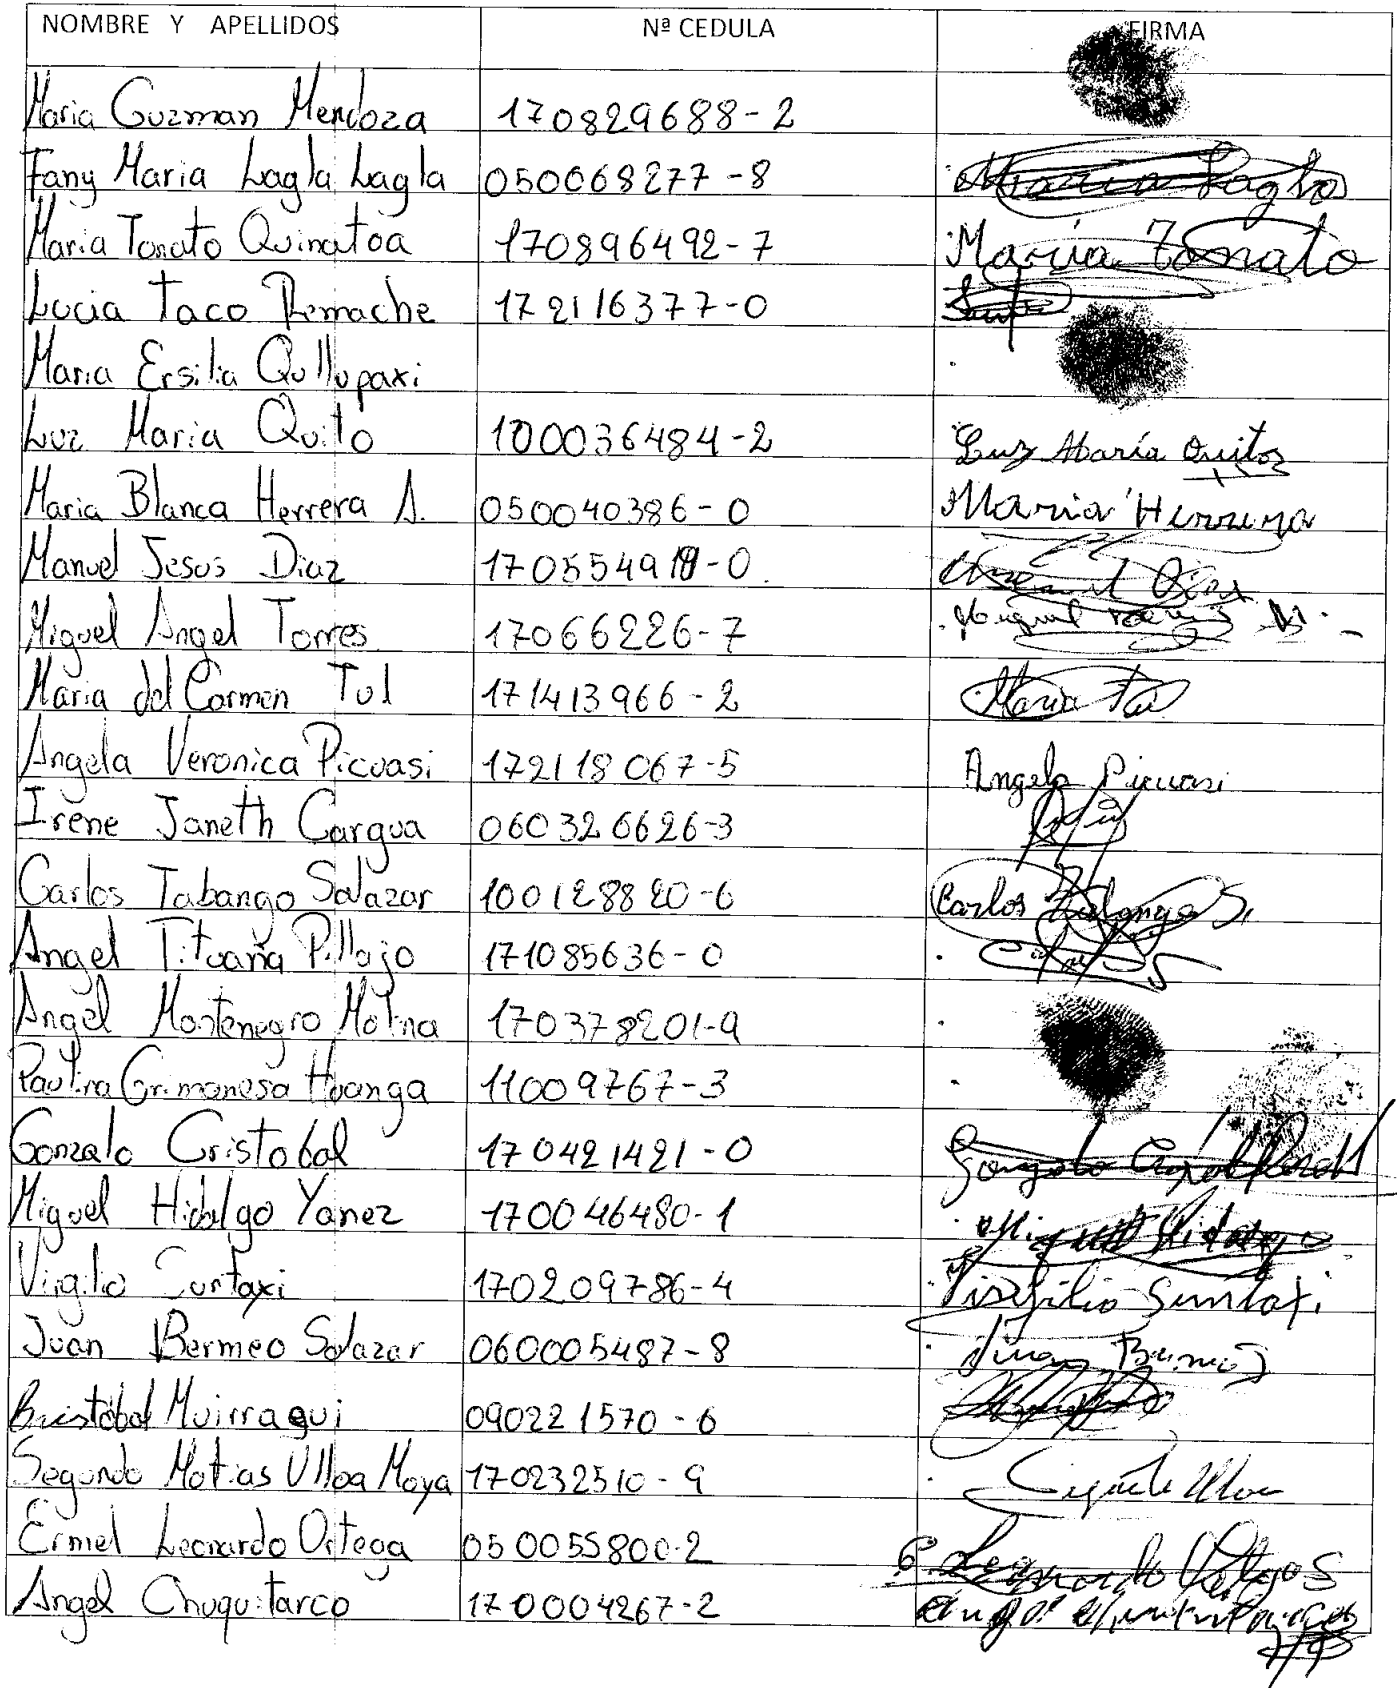 NOMBRE Y APELLIDOS Nª CEDULA FIRMA
Maria Guzman Mendoza 170829688-2
Fany Maria Lagla Lagla 050068277-8 Maria Lagla
Maria Tonato Quinatoa 170896492-7 Maria Tonato
Lucia Taco Remache 172116377-0
Maria Ersilia Qullupaxi
Luz Maria Quito 100036484-2 Luz María Quito
Maria Blanca Herrera A. 050040386-0 Maria Herrera
Manuel Jesus Diaz 1705549 -0 Manuel Diaz
Miguel Angel Torres 17066226-7 Miguel
Maria del Carmen Tul 171413966-2 Maria Tul
Angela Veronica Picuasi 172118067-5 Angela Picuasi
Irene Janeth Cargua 060326626-3
Carlos Tabango Salazar 100128820-6 Carlos Tabango S.
Angel Tituaña Pillajo 171085636-0
Angel Montenegro Molina 170378201-9
Paulina Grimanesa Huanga 11009767-3
Gonzalo Cristobal 170421421-0 Gonzalo
Miguel Hidalgo Yanez 170046480-1 Miguel Hidalgo
Virgilio Suntaxi 170209786-4 Virgilio Suntaxi
Juan Bermeo Salazar 060005487-8 Juan Bermeo
Cristobal Muirragui 090221570-6
Segundo Matias Ulloa Moya 170232510-9 Ulloa
Ermel Leonardo Ortega 050055800-2 Leonardo
Angel Chuquitarco 170004267-2